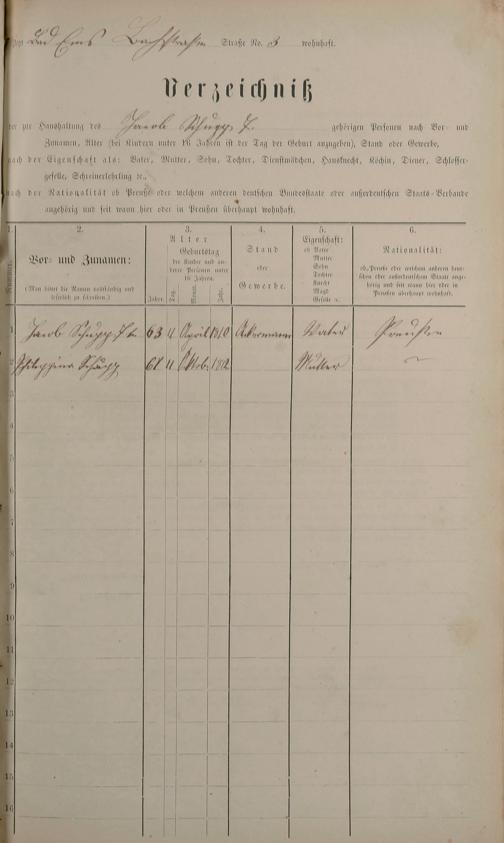 Bad Ems Bachstraße Straße No. 3 wohnhaft.
Verzeichniß
der zur Haushaltung des Jacob Schupp gehörigen Personen nach Vor- und
Zunamen, Alter (bei Kindern unter 16 Jahren ist der Tag der Geburt anzugeben), Stand oder Gewerbe,
nach der Eigenschaft als: Vater, Mutter, Sohn, Tochter, Dienstmädchen, Hausknecht, Köchin, Diener, Schlosser-
geselle, Schreinerlehrling ꝛc.,
nach der Nationalität ob Preuße oder welchem anderen deutschen Bundesstaate oder außerdeutschen Staats-Verbande
angehörig und seit wann hier oder in Preußen überhaupt wohnhaft.
1. 2. 3. 4. 5. 6.
Nummer.
Vor- und Zunamen:
(Man bittet die Namen vollständig und
leserlich zu schreiben.)
Alter
Geburtstag
der Kinder und an-
derer Personen unter
16 Jahren.
Jahre. Tag. Monat. Jahr.
Stand
oder
Gewerbe.
Eigenschaft:
ob Vater
Mutter
Sohn
Tochter
Knecht
Magd
Geselle ꝛc.
Nationalität:
ob Preuße oder welchem anderen deut-
schen oder außerdeutschen Staate ange-
hörig und seit wann hier oder in
Preußen überhaupt wohnhaft.
1 Jacob Schupp 63 11 April 1810 Ackersmann Vater Preußen
2 Philippina Schupp 61 11 Oktob. Mutter
3
4
5
6
7
8
9
10
11
12
13
14
15
16